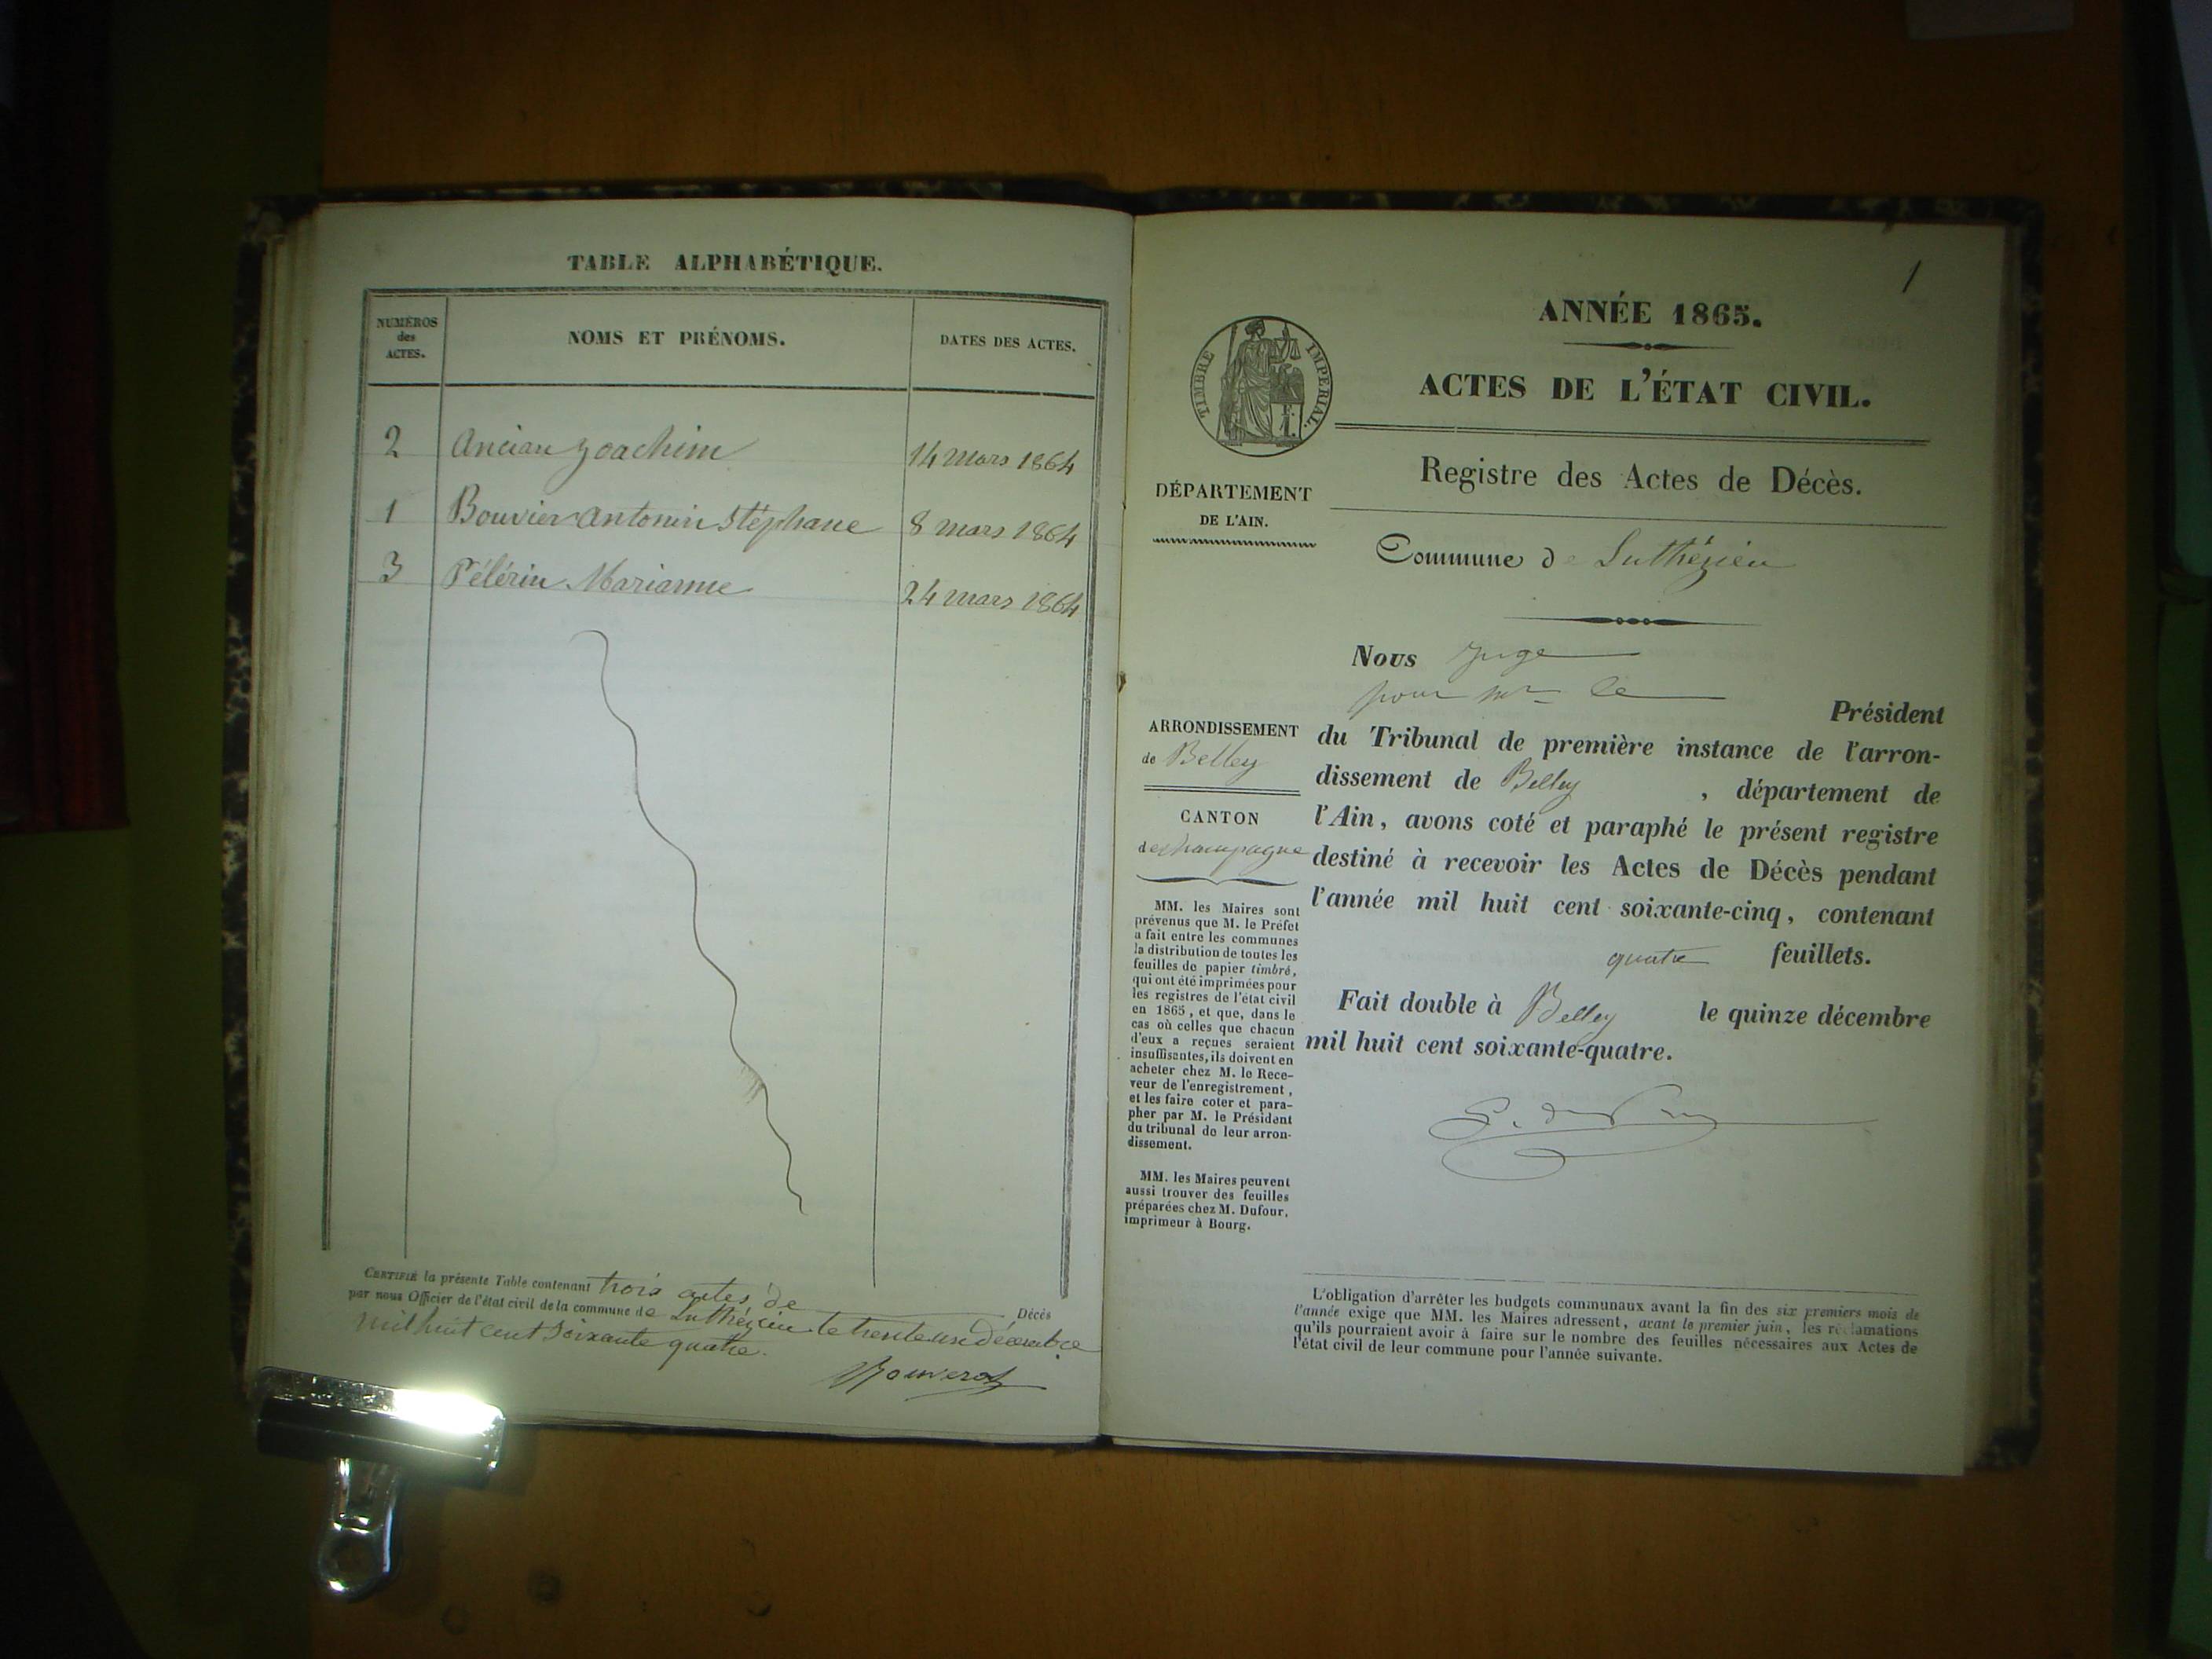 TABLE ALPHABÉTIQUE.
NUMÉROS des ACTES.
NOMS ET PRÉNOMS.
DATES DES ACTES.
2 Ancian Joachim 14 mars 1864
1 Bouvier Antonin Stéphane 8 mars 1864
3 Pélérin Marianne 24 mars 1864
CERTIFIÉ la présente Table contenant trois actes de Décès
par nous Officier de l'état civil de la commune de Luthézieu le trente un Décembre
mil huit cent soixante quatre.
1
ANNÉE 1865.
TIMBRE IMPÉRIAL.
ACTES DE L'ÉTAT CIVIL.
Registre des Actes de Décès.
DÉPARTEMENT
DE L'AIN.
Commune de Luthézieu
Nous Juge
pour Mr le
Président
du Tribunal de première instance de l'arron-
dissement de Belley , département de
l'Ain, avons coté et paraphé le présent registre
destiné à recevoir les Actes de Décès pendant
l'année mil huit cent soixante-cinq, contenant
quatre feuillets.
Fait double à Belley le quinze décembre
mil huit cent soixante-quatre.
ARRONDISSEMENT
de Belley
CANTON
de champagne
MM. les Maires sont
prévenus que M. le Préfet
a fait entre les communes
la distribution de toutes les
feuilles de papier timbré,
qui ont été imprimées pour
les registres de l'état civil
en 1865, et que, dans le
cas où celles que chacun
d'eux a reçues seraient
insuffisantes, ils doivent en
acheter chez M. le Rece-
veur de l'enregistrement,
et les faire coter et para-
pher par M. le Président
du tribunal de leur arron-
dissement.
MM. les Maires peuvent
aussi trouver des feuilles
préparées chez M. Dufour,
imprimeur à Bourg.
L'obligation d'arrêter les budgets communaux avant la fin des six premiers mois de
l'année exige que MM. les Maires adressent, avant le premier juin, les réclamations
qu'ils pourraient avoir à faire sur le nombre des feuilles nécessaires aux Actes de
l'état civil de leur commune pour l'année suivante.